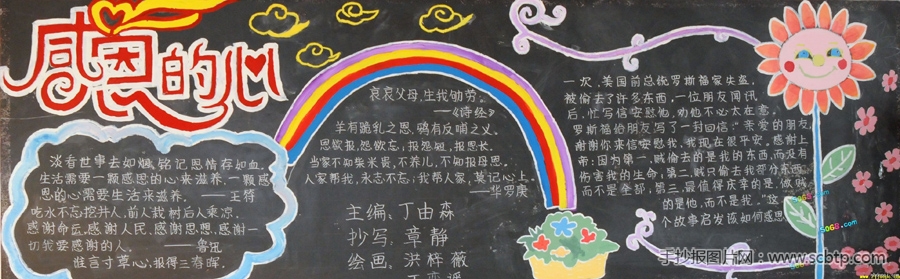 感恩的心
淡看世事去如烟,铭记恩情存如血。
生活需要一颗感恩的心来滋养,一颗感
恩的心需要生活来滋养。——王符
吃水不忘挖井人,前人栽树后人乘凉。
感谢命运,感谢人民,感谢思思,感谢一
切我要感谢的人。——鲁迅
谁言寸草心,报得三春晖。
哀哀父母,生我劬劳。
——《诗经》
羊有跪乳之恩,鸦有反哺之义。
恩欲报,怨欲忘;报怨短,报恩长。
当家不知柴米贵,不养儿,不知报母恩。
人家帮我,永志不忘;我帮人家,莫记心上。
——华罗庚
主编、丁由森
抄写、章静
绘画、洪梓薇
一次,美国前总统罗斯福家失盗,
被偷去了许多东西,一位朋友闻讯
后,忙写信安慰他,劝他不必太在意。
罗斯福给朋友写了一封回信:“亲爱的朋友,
谢谢你来信安慰我,我现在很平安。感谢上
帝:因为第一,贼偷去的是我的东西,而没有
伤害我的生命;第二,贼只偷去我部分东西,
而不是全部;第三,最值得庆幸的是,做贼
的是他,而不是我。”这
个故事启发该如何感恩
5068.com
5068.com
手抄报图片网·www.scbtp.com